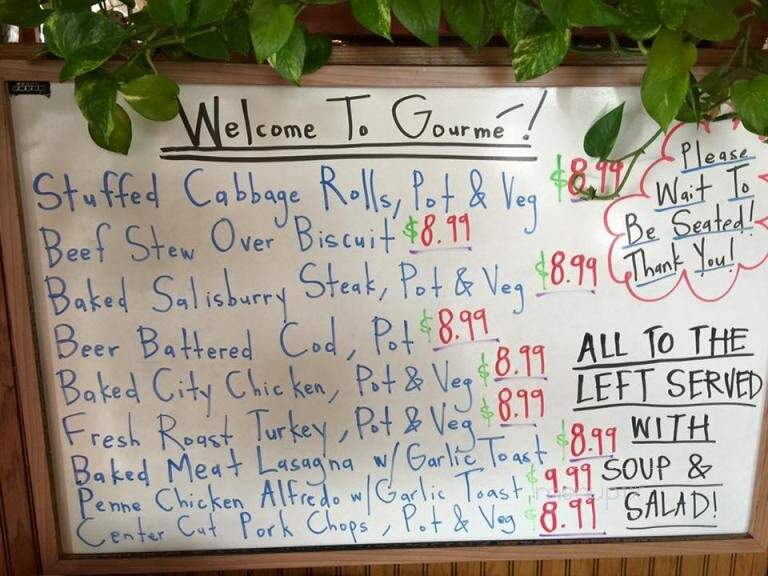 Welcome To Gourmé!
Stuffed Cabbage Rolls, Pot & Veg $8.99
Beef Stew Over Biscuit $8.99
Baked Salisburry Steak, Pot & Veg $8.99
Beer Battered Cod, Pot $8.99
Baked City Chicken, Pot & Veg $8.99
Fresh Roast Turkey, Pot & Veg $8.99
Baked Meat Lasagna w/ Garlic Toast $8.99
Penne Chicken Alfredo w/ Garlic Toast $9.99
Center Cut Pork Chops, Pot & Veg $8.99
Please
Wait To
Be Seated!
Thank You!
ALL TO THE
LEFT SERVED
WITH
SOUP &
SALAD!